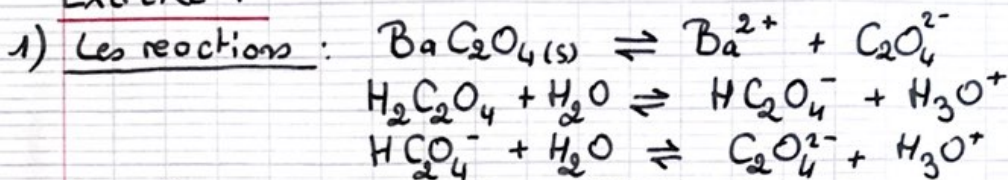 1) Les reactions : BaC₂O₄(s) ⇌ Ba²⁺ + C₂O₄²⁻
H₂C₂O₄ + H₂O ⇌ HC₂O₄⁻ + H₃O⁺
HC₂O₄⁻ + H₂O ⇌ C₂O₄²⁻ + H₃O⁺